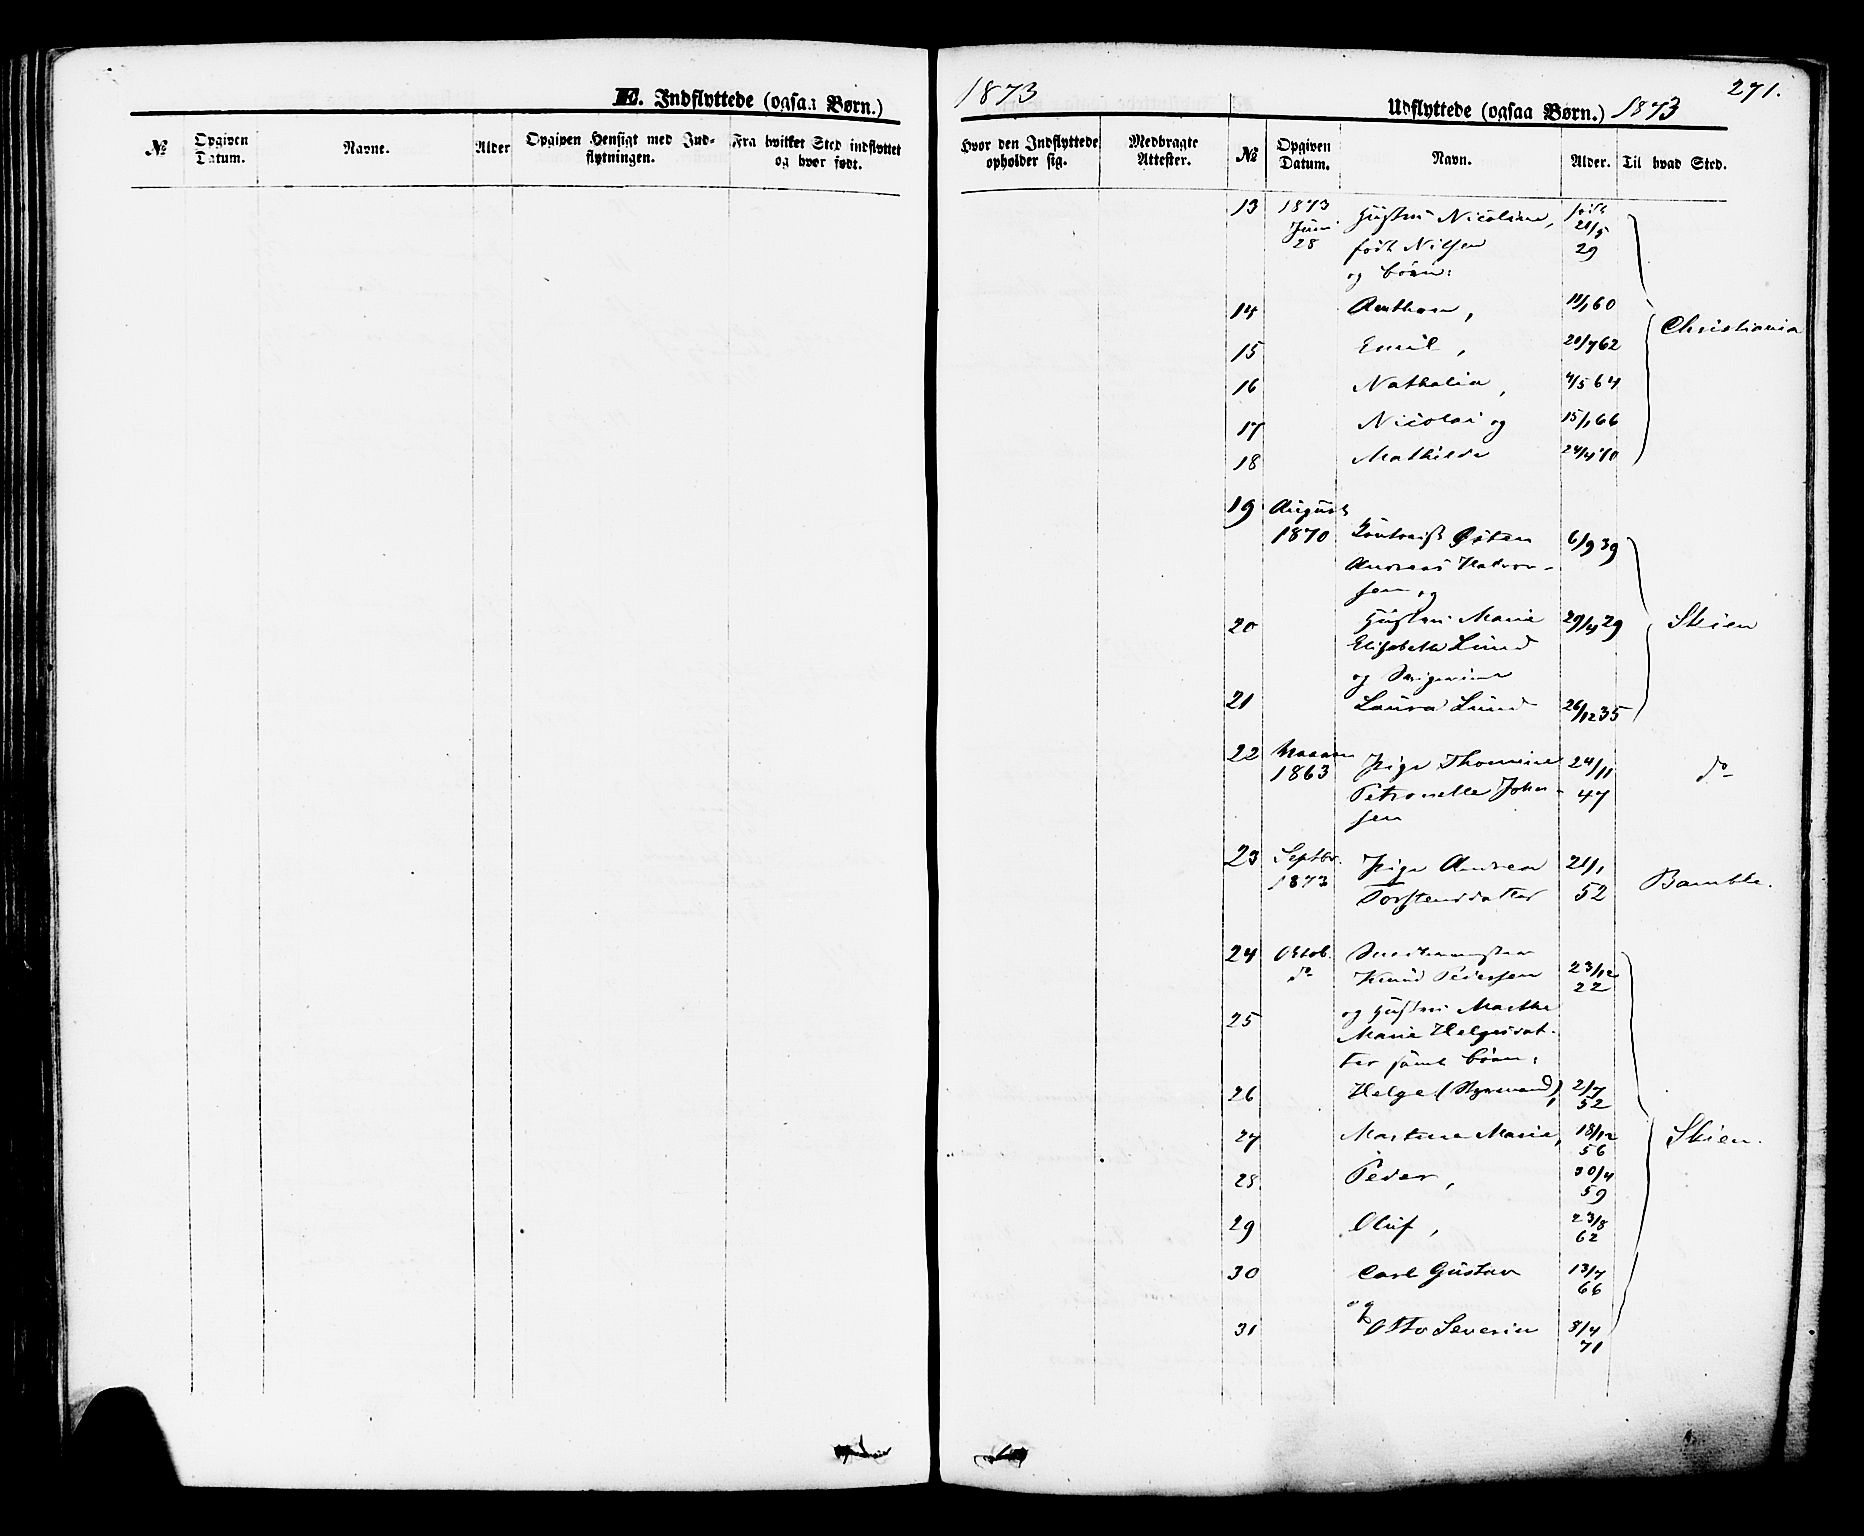 E. Indflyttede (ogsaa Børn.)
1873
271.
Udflyttede (ogsaa Børn.) 1873
№
Opgiven Datum.
Navne.
Alder
Opgiven Hensigt med Indflytningen.
Fra hvilket Sted indflyttet og hvor født.
Hvor den Indflyttede opholder sig.
Medbragte Attester.
№
Opgiven Datum.
Navn.
Alder.
Til hvad Sted.
13 1873 Hustru Nicoline, født
Juni 21/5
28 født Nilsen 29
og börn:
14 Anthon, 11/1 60 Christiania
15 Emil, 20/7 62
16 Nathalia, 4/5 64
17 Nicolai og 15/1 66
18 Mathilde 24/4 70
19 August
1870 Østen 6/9 39
Andreas Halvor-
sen og
20 Hustru Marie 29/4 29 Skien
Elisabeth Lund
og
21 Laura Lund 26/12 35
22
1863 Pige Thomine 24/11 do
Petronelle John- 47
sen
23 Septbr. Pige Andrea 21/1
1873 Torstensdatter 52 Bamble.
24 Octob.
do Knud Pedersen 23/12
22
25 og Hustru Marthe
Marie Helgesdat-
ter samt börn:
26 Helge (Styrmand), 2/7
52
27 Martine Marie, 18/12 Skien.
56
28 Peder, 30/4
59
29 Oluf, 23/8
62
30 Carl Gustav 13/7
66
og
31 Otto Severin 8/4
71